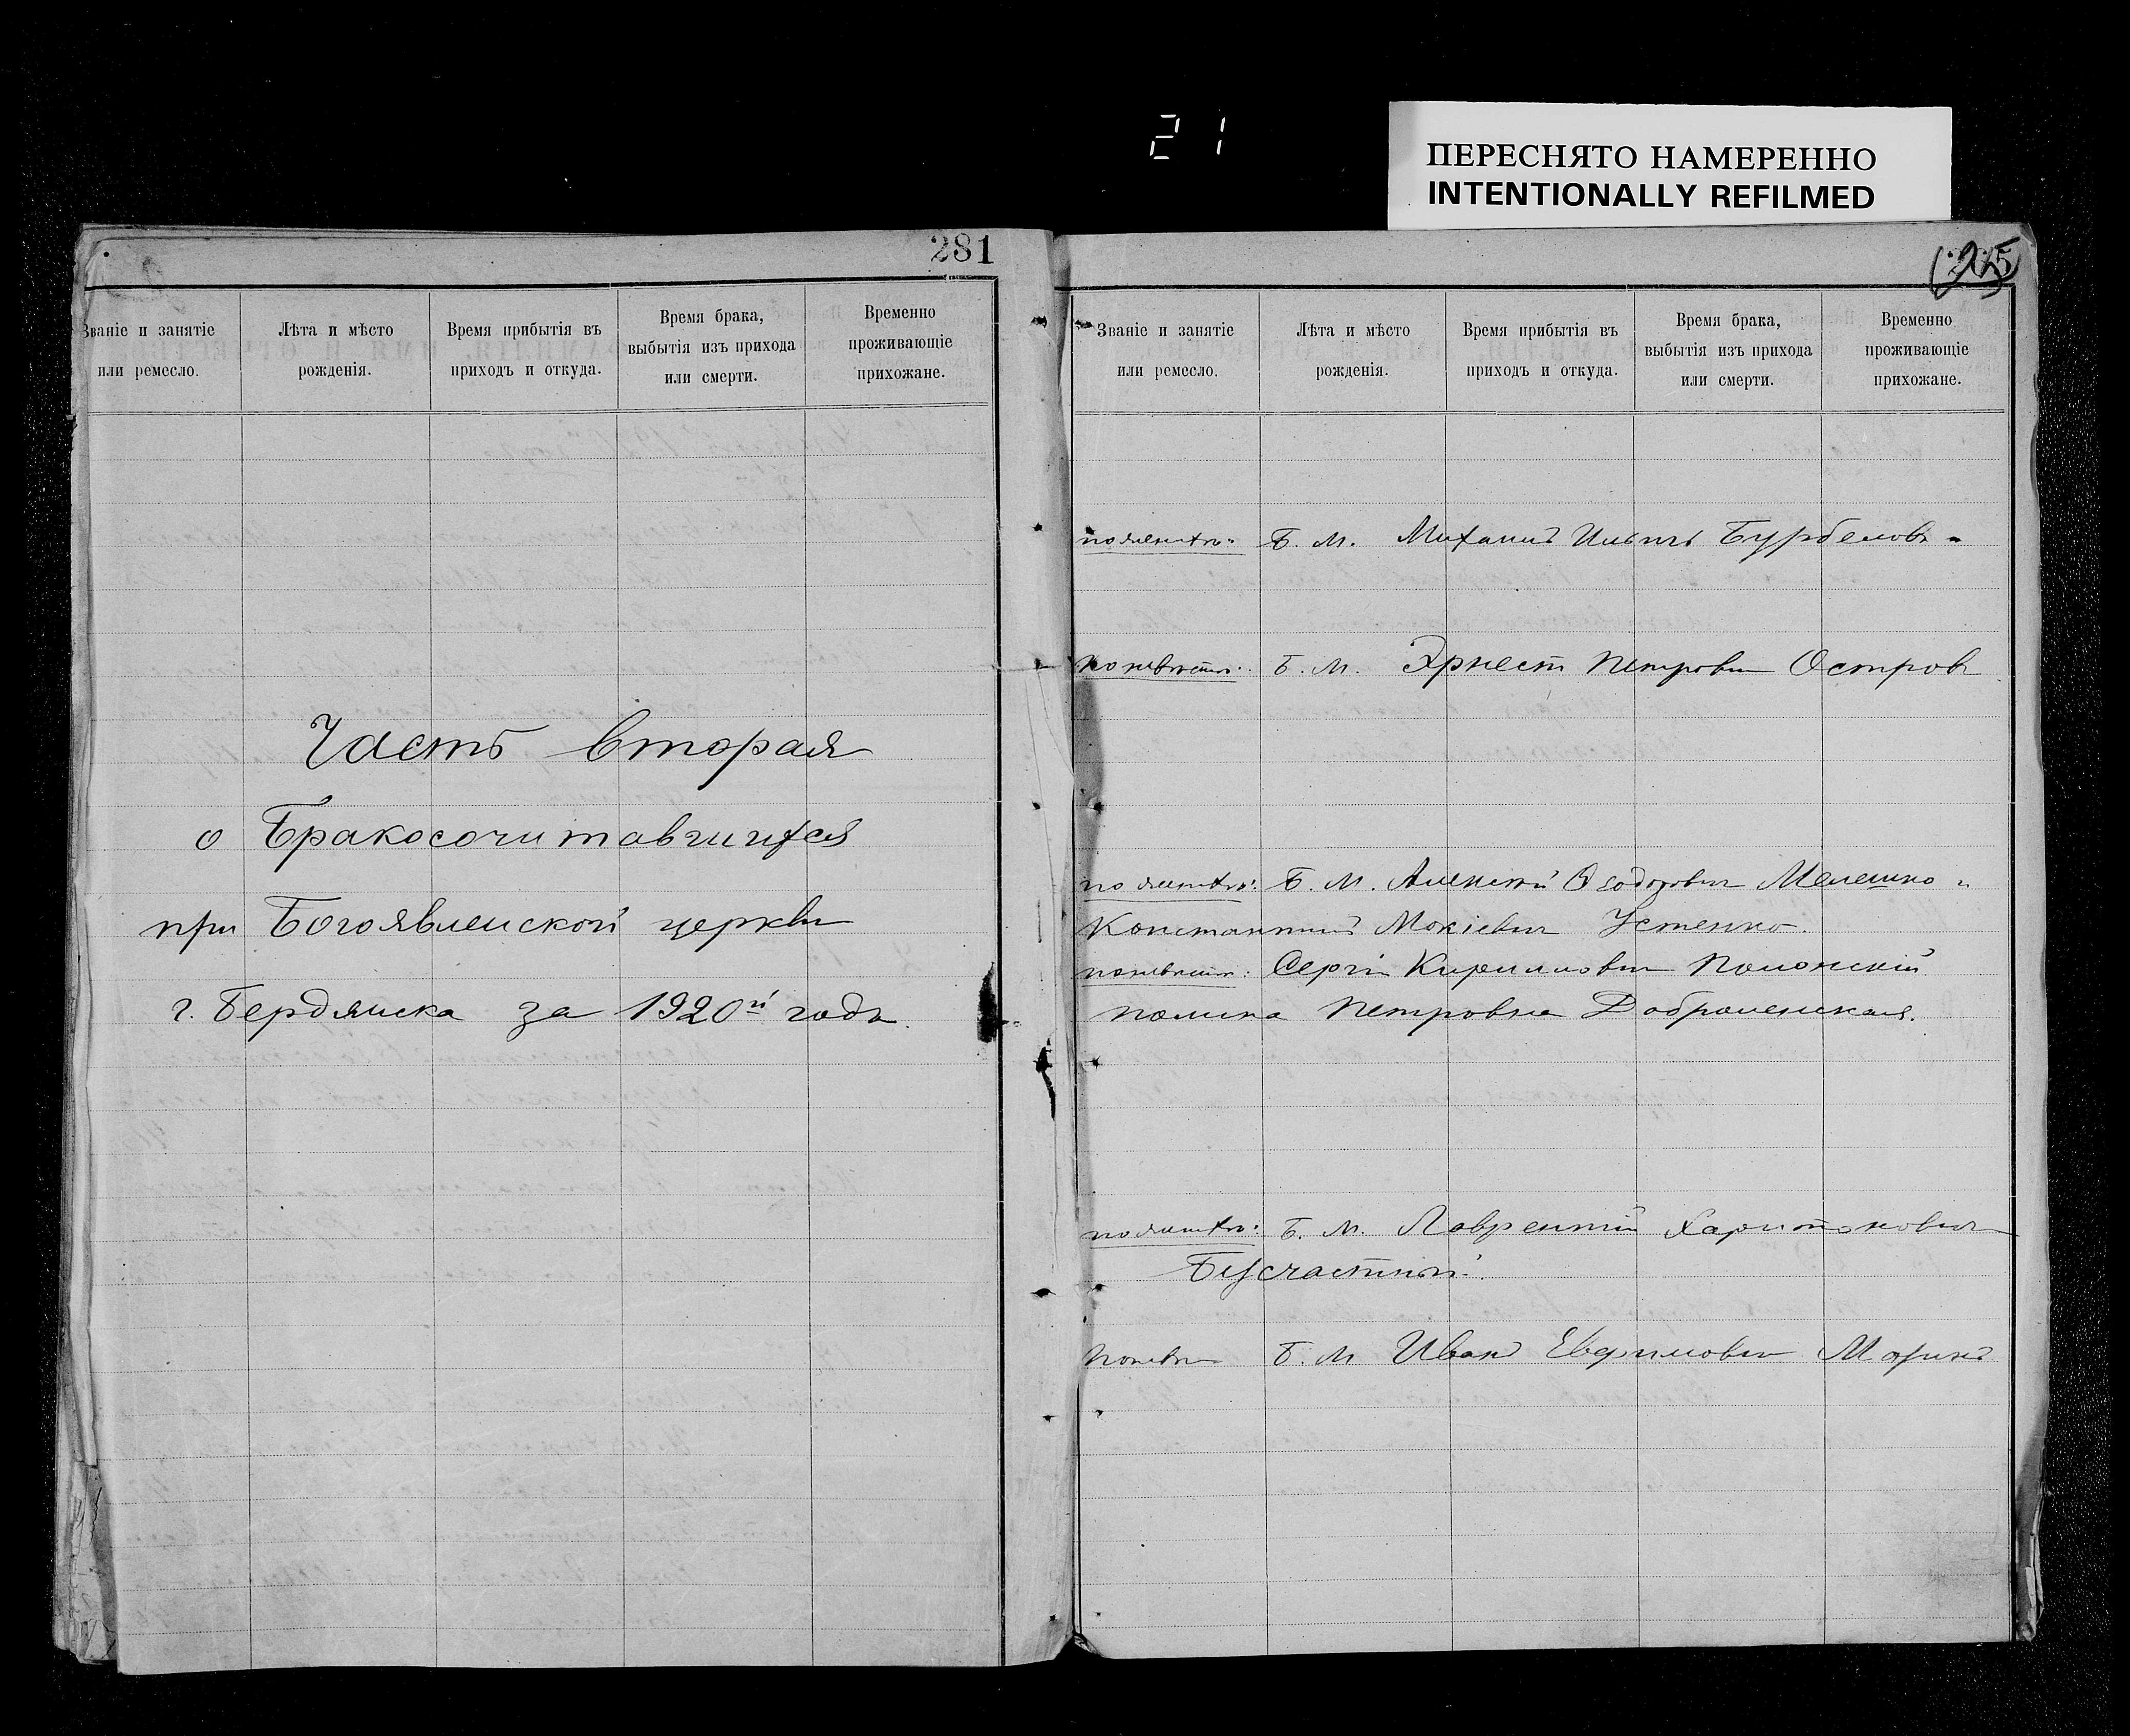 21
ПЕРЕСНЯТО НАМЕРЕННО
INTENTIONALLY REFILMED
281
Званіе и занятіе или ремесло.
Лѣта и мѣсто рожденія.
Время прибытія въ приходъ и откуда.
Время брака, выбытія изъ прихода или смерти.
Временно проживающіе прихожане.
Часть вторая
о Бракосочитавшихся
при Богоявленской церкви
г. Бердянска за 1920й годъ.
25
Званіе и занятіе или ремесло.
Лѣта и мѣсто рожденія.
Время прибытія въ приходъ и откуда.
Время брака, выбытія изъ прихода или смерти.
Временно проживающіе прихожане.
по женихѣ: Б. М. Михаилъ Ильичъ Бурбеловъ
по невѣстѣ: Б. М. Эрнест Петрович Островъ
по женихѣ: Б. М. Алексѣй Ѳеодорович Мелешко и
Константинъ Мокіевич Устенко.
по невѣстѣ: Сергій Кириллович Полонскій
Полина Петровна
по женихѣ: Б. М. Лаврентій Харитонович
Безсчастный.
по невѣс Б. М. Иванъ Евфимович